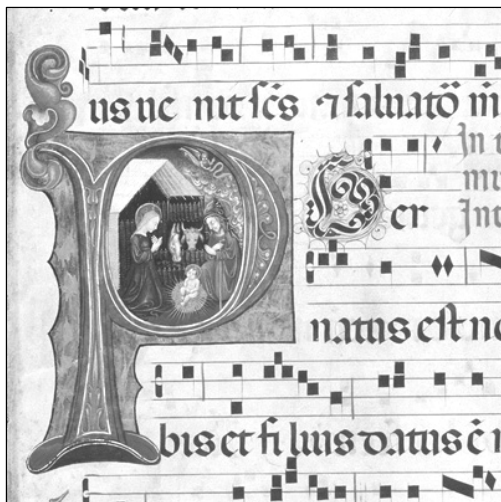 us ue nit scs̄ ⁊ saluatō
P Uer In
natus est no
bis et fi lius datus ē